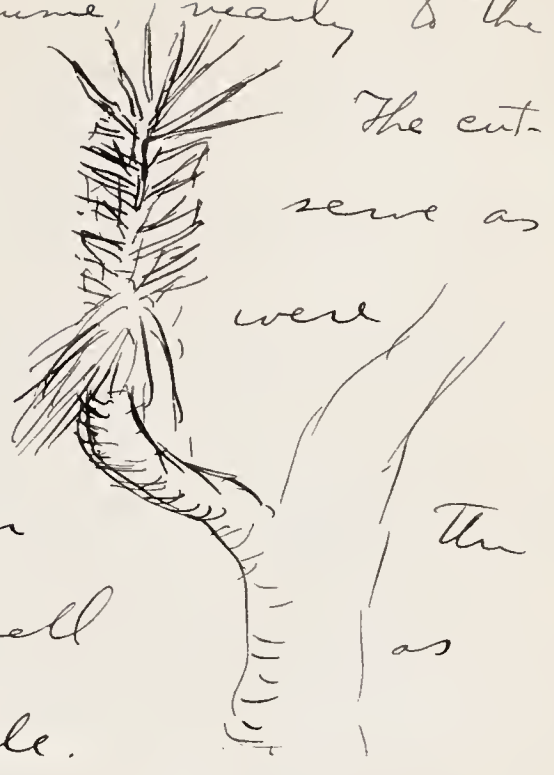 nearly to the
The cut-
serve as
were
The
ell as
le.